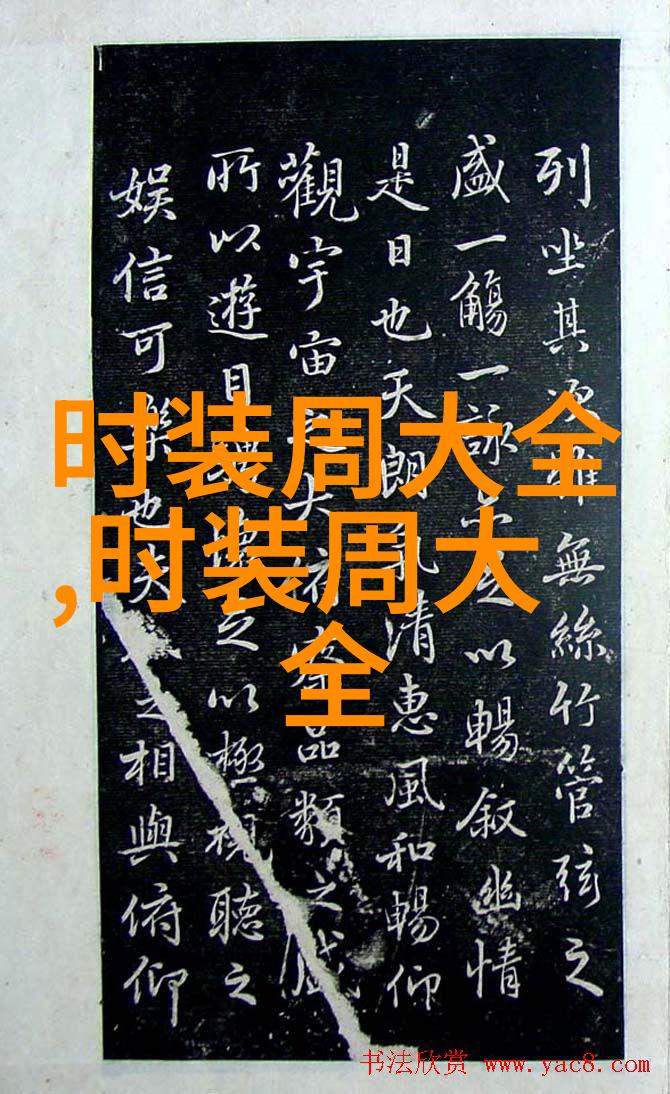 列坐其次雖無絲竹管弦之
盛一觴一詠亦足以暢叙幽情
是日也天朗氣清惠風和暢仰
觀宇宙之大俯察品類之盛
所以遊目騁懷足以極視聽之
娛信可樂也夫人之相與俯仰
时装周大全
,时装周大
全
书法欣赏 www.yac8.com